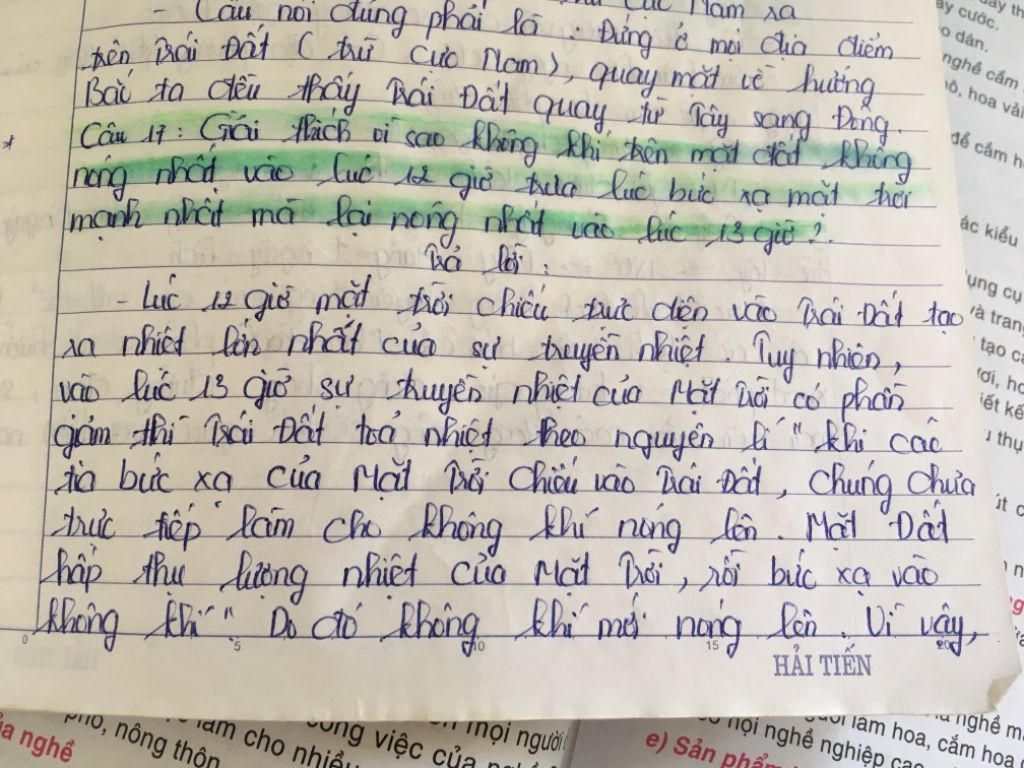 - Câu nói đúng phải là : Đứng ở mọi địa điểm
trên Trái Đất ( trừ Cực Nam ), quay mặt về hướng
Bắc ta đều thấy Trái Đất quay từ Tây sang Đông.
* Câu 17 : Giải thích vì sao không khí trên mặt đất không
nóng nhất vào lúc 12 giờ trưa lúc bức xạ mặt trời
mạnh nhất mà lại nóng nhất vào lúc 13 giờ ?
Trả lời :
- Lúc 12 giờ mặt trời chiếu trực diện vào Trái Đất tạo
ra nhiệt lớn nhất của sự truyền nhiệt. Tuy nhiên,
vào lúc 13 giờ sự truyền nhiệt của Mặt Trời có phần
giảm thì Trái Đất toả nhiệt theo nguyên lí " khi các
tia bức xạ của Mặt Trời chiếu vào Trái Đất, chúng chưa
trực tiếp làm cho không khí nóng lên. Mặt Đất
hấp thụ lượng nhiệt của Mặt Trời, rồi bức xạ vào
không khí " Do đó không khí mới nóng lên. Vì vậy,
0 5 10 15 20
HẢI TIẾN
ây cước.
o dân.
nghề cắm
để cắm h
ác kiểu
ụng cụ
và tran
tạo cá
iết kế
phố, nông thôn
làm cho nhiều
công việc của
mọi người
ủa nghề
làm hoa, cắm hoa
e) Sản phẩm
nghề m